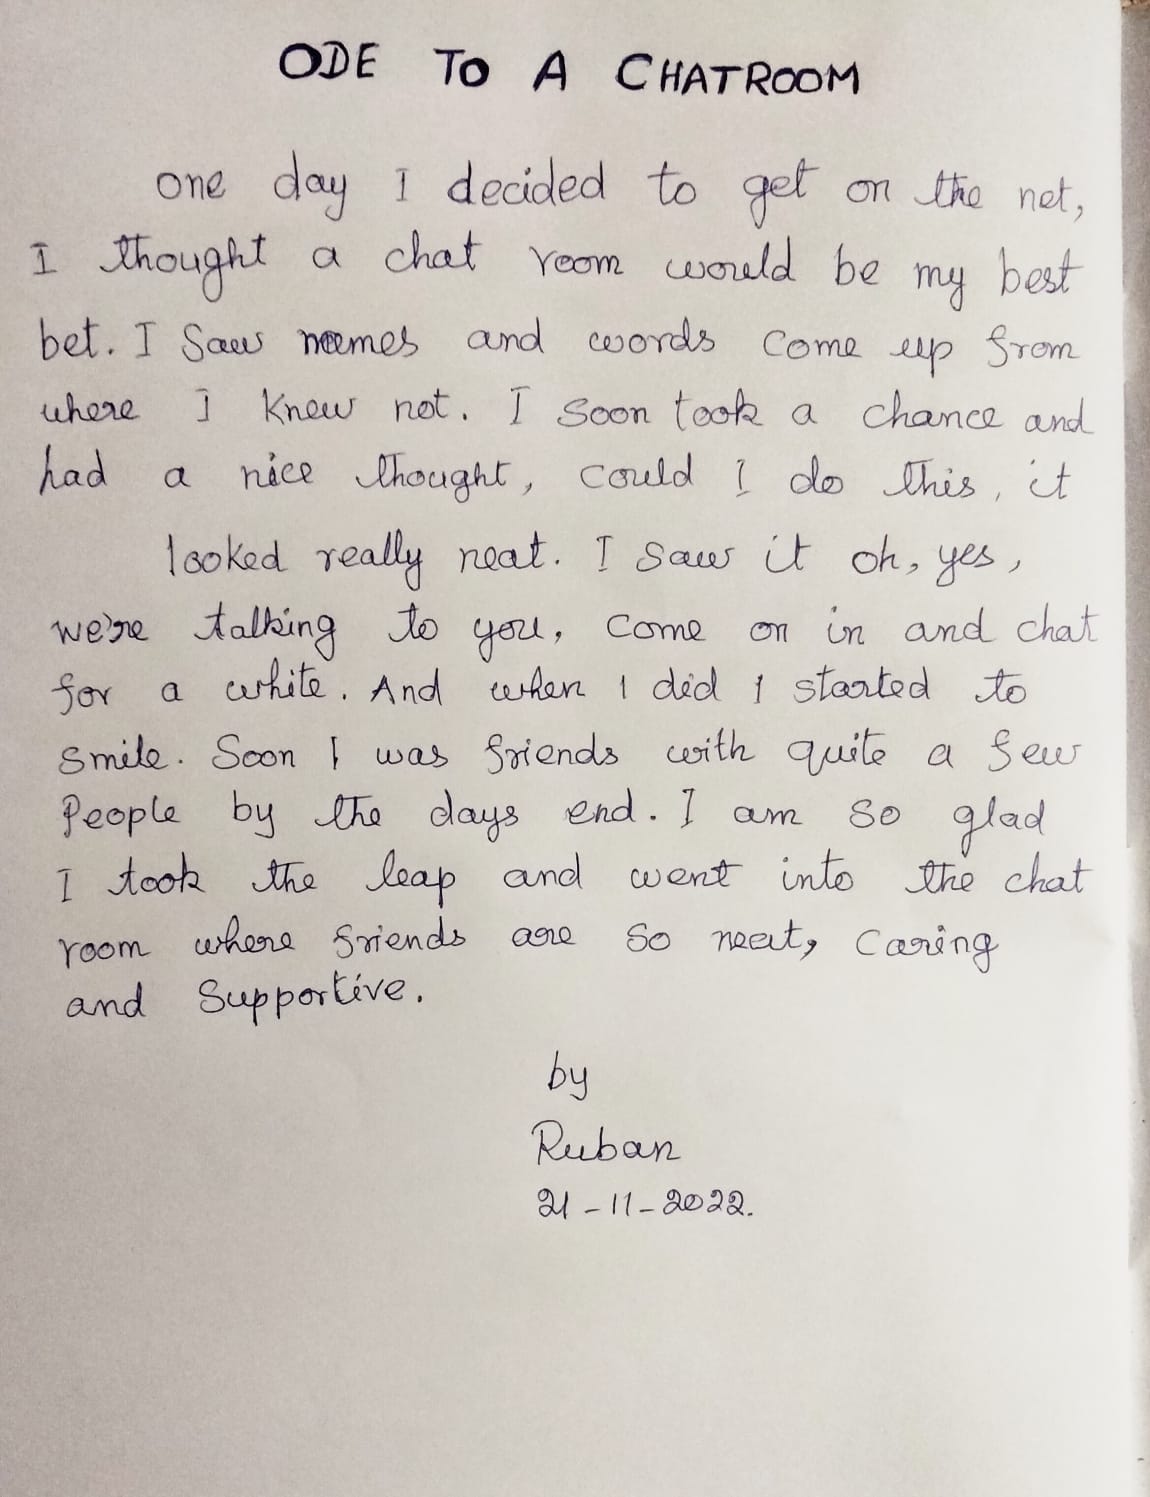 ODE TO A CHATROOM
one day I decided to get on the net,
I thought a chat room would be my best
bet. I Saw names and words come up from
where I knew not. I soon took a chance and
had a nice thought, could I do this, it
looked really neat. I saw it oh, yes,
we're talking to you, come on in and chat
for a white. And when I did I started to
smile. Soon I was friends with quite a few
People by the days end. I am so glad
I took the leap and went into the chat
room where friends are so neat, caring
and Supportive.
by
Ruban
21-11-2022.